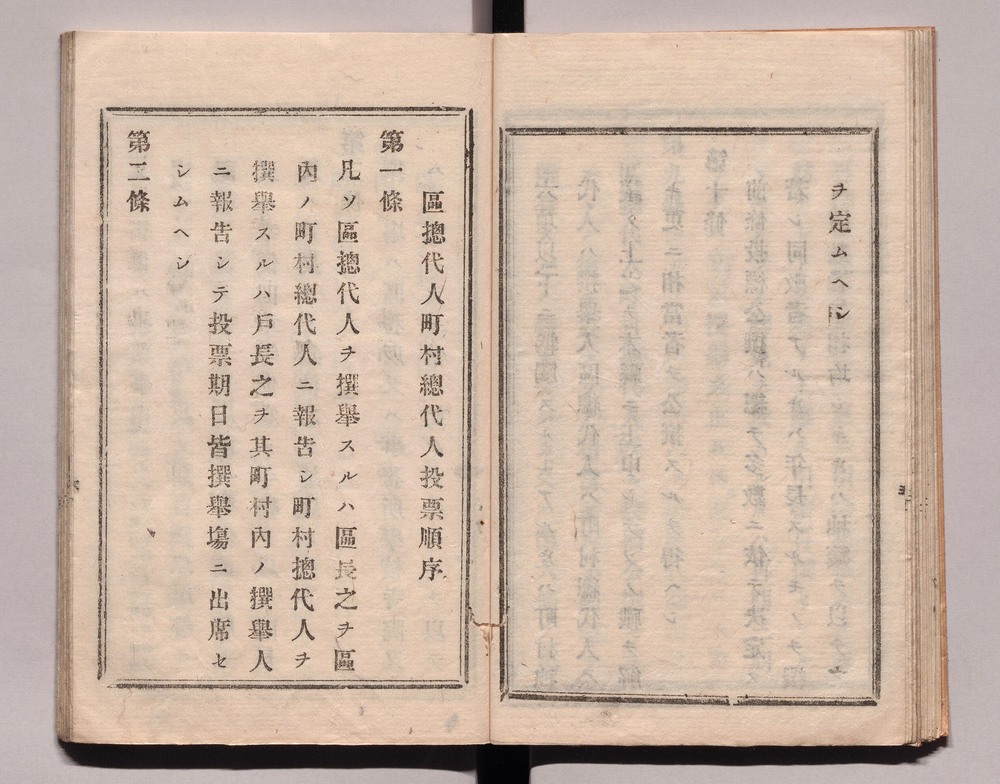 ヲ定ムヘシ
區摠代人町村總代人投票順序
第一條
凡ソ區摠代人ヲ撰擧スルハ區長之ヲ區
內ノ町村總代人ニ報告シ町村摠代人ヲ
撰擧スルハ戶長之ヲ其町村內ノ撰擧人
ニ報告シテ投票期日皆撰擧塲ニ出席セ
シムヘシ
第二條